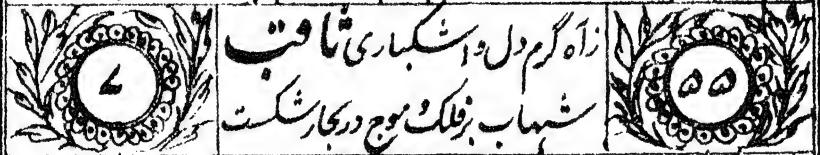 ۵۵
زآه گرم دل و اشکباری ثاقب
شهاب بر فلک و موج در بحار شکست
۷